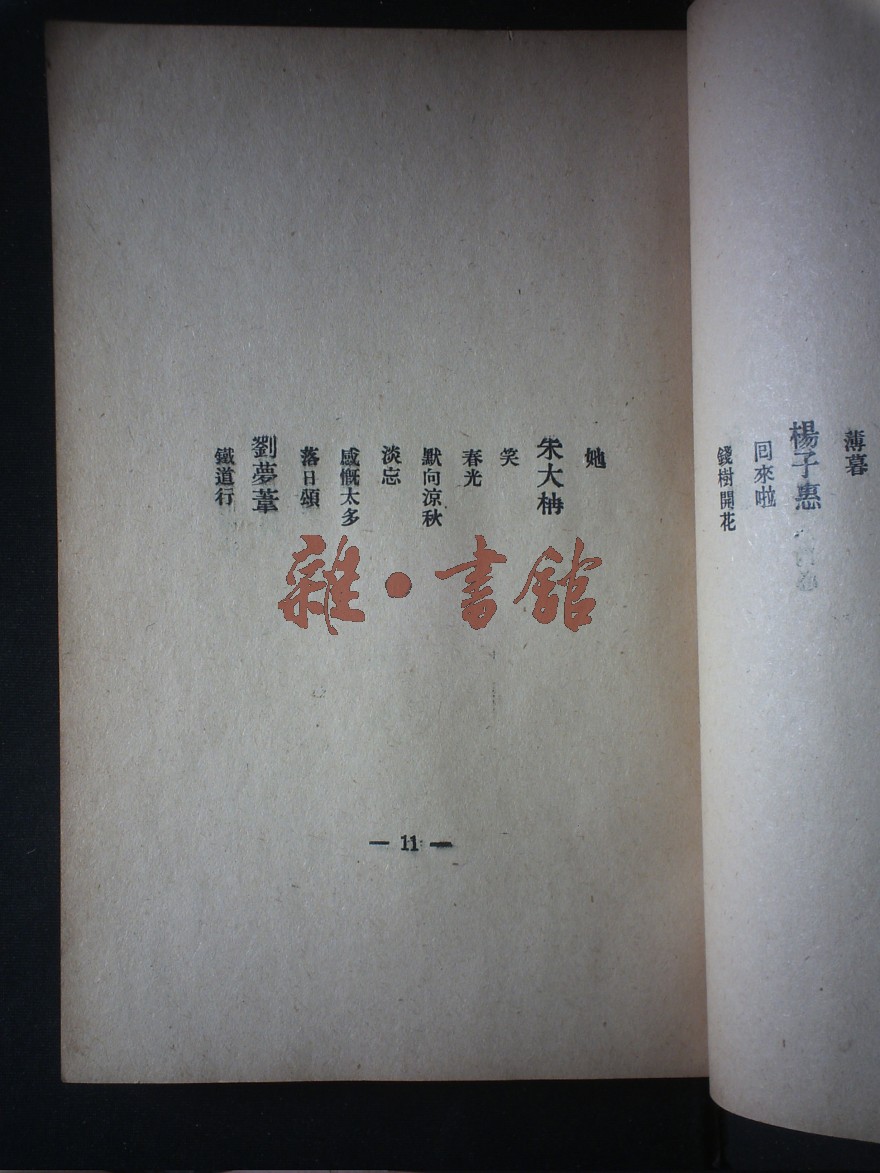 薄暮
楊子惠
回來啦
錢樹開花
她
朱大枬
笑
春光
默向涼秋
淡忘
感慨太多
落日頌
劉夢葦
鐵道行
雜·書館
— 11 —